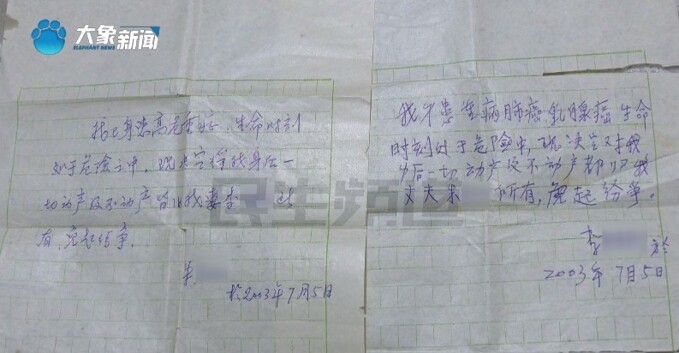 大象新闻
ELEPHANT NEWS
我已身患高危重症,生命时刻
处于危险之中,现决定将我身后一
切动产及不动产皆归我妻李 所
有,免起纷争。
朱
於2003年7月5日
我不患重病肺癌乳腺癌生命
时刻处于危险中,现决定对我
身后一切动产及不动产都归我
丈夫朱 所有,免起纷争。
李 於
2003年7月5日
民生频道